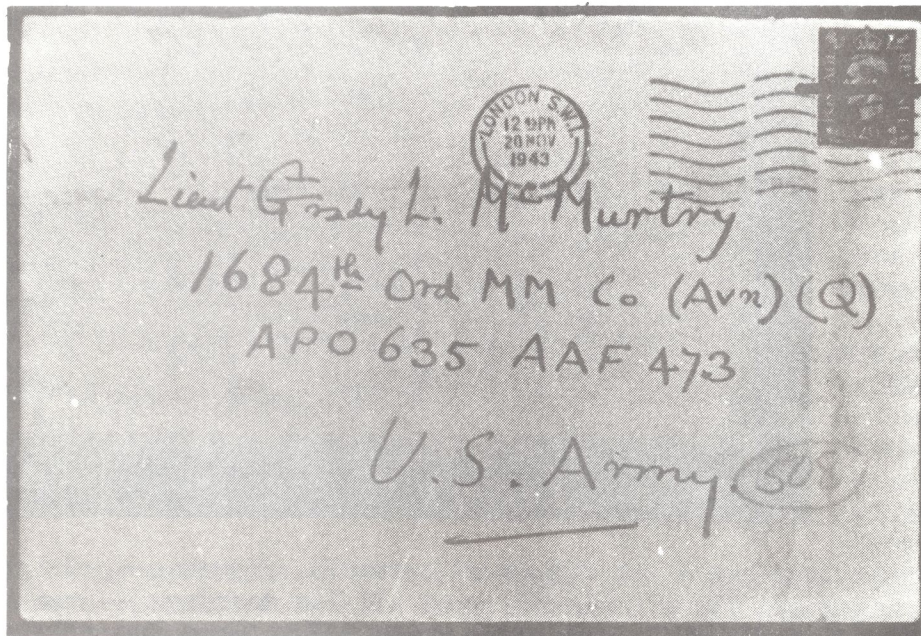 LONDON S.W.1.
20 NOV
1943
Lieut Grady L. McMurtry
1684th Ord MM Co (Avn) (Q)
APO 635 AAF 473
U.S. Army.
508